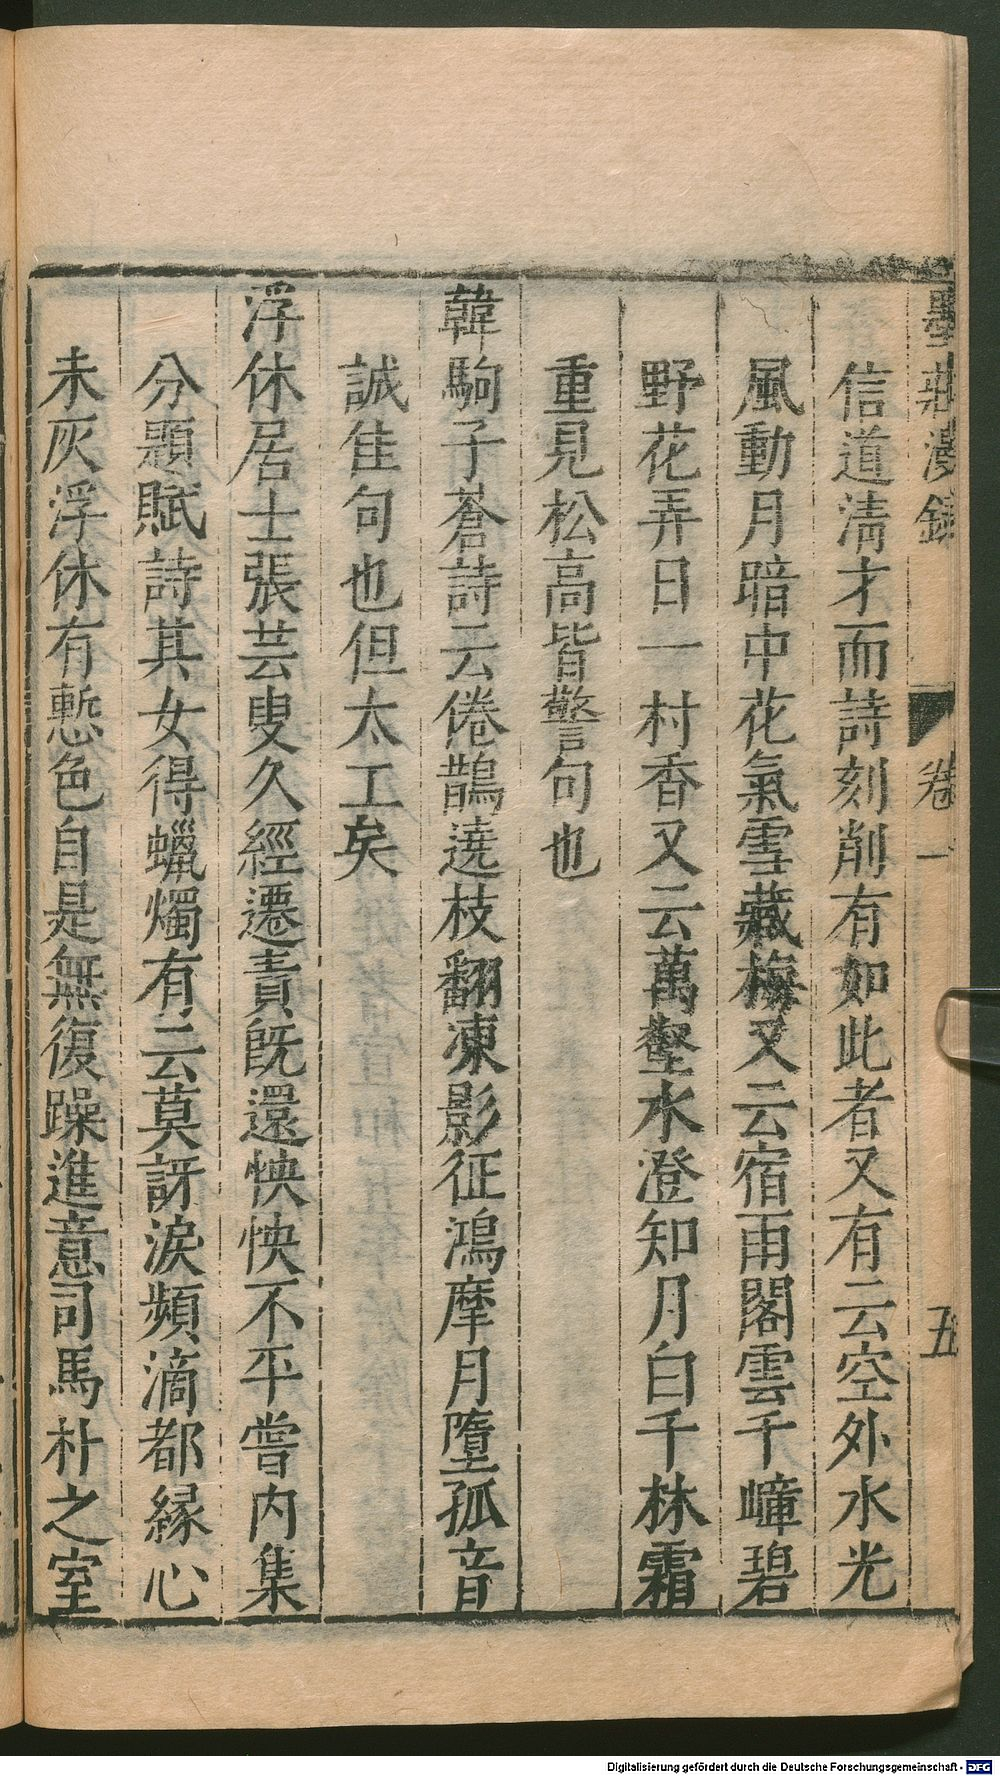 墨莊漫錄 卷一 五
信道清才而詩刻削有如此者又有云空外水光
風動月暗中花氣雪藏梅又云宿雨閣雲千嶂碧
野花弄日一村香又云萬壑水澄知月白千林霜
重見松高皆警句也
韓駒子蒼詩云倦鵲遶枝翻凍影征鴻摩月墮孤音
誠佳句也但太工矣
浮休居士張芸叟久經遷責既還怏怏不平嘗內集
分題賦詩其女得蠟燭有云莫訝淚頻滴都緣心
未灰浮休有慙色自是無復躁進意司馬朴之室
Digitalisierung gefördert durch die Deutsche Forschungsgemeinschaft - DFG